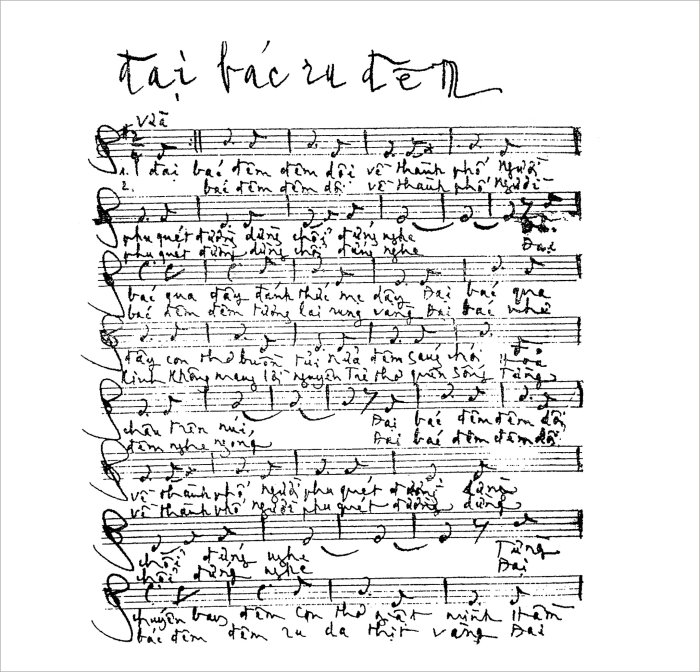 đại bác ru đêm
Vừa
1. đại bác đêm đêm dội về thành phố Người
2. bác đêm đêm dội về thành phố Người
phu quét đường dừng chổi đứng nghe Đại
phu quét đường dừng chổi đứng nghe Đại
bác qua đây đánh thức mẹ dậy Đại bác qua
bác đêm đêm tương lai rụng vàng Đại bác như
đây con thơ buồn tủi nửa đêm sáng chói Hoả
kinh không mang lời nguyện Trẻ thơ quên sống Từng
châu trên núi Đại bác đêm đêm dội
đêm nghe ngóng Đại bác đêm đêm dội
về thành phố Người phu quét đường dừng
về thành phố Người phu quét đường dừng
chổi đứng nghe Từng
chổi đứng nghe Đại
chuyến bay đêm con thơ giật mình Hầm
bác đêm đêm ru da thịt vàng Đại